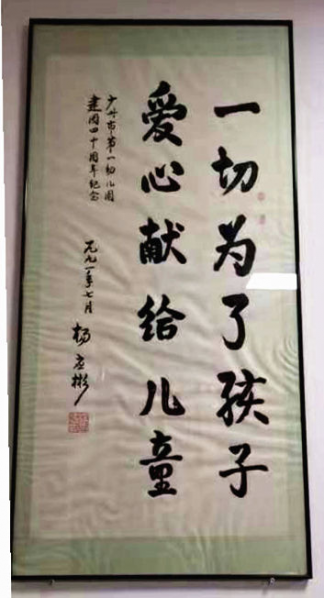 一切为了孩子
爱心献给儿童
广州市第一幼儿园
建园四十周年纪念
一九九一年七月
杨